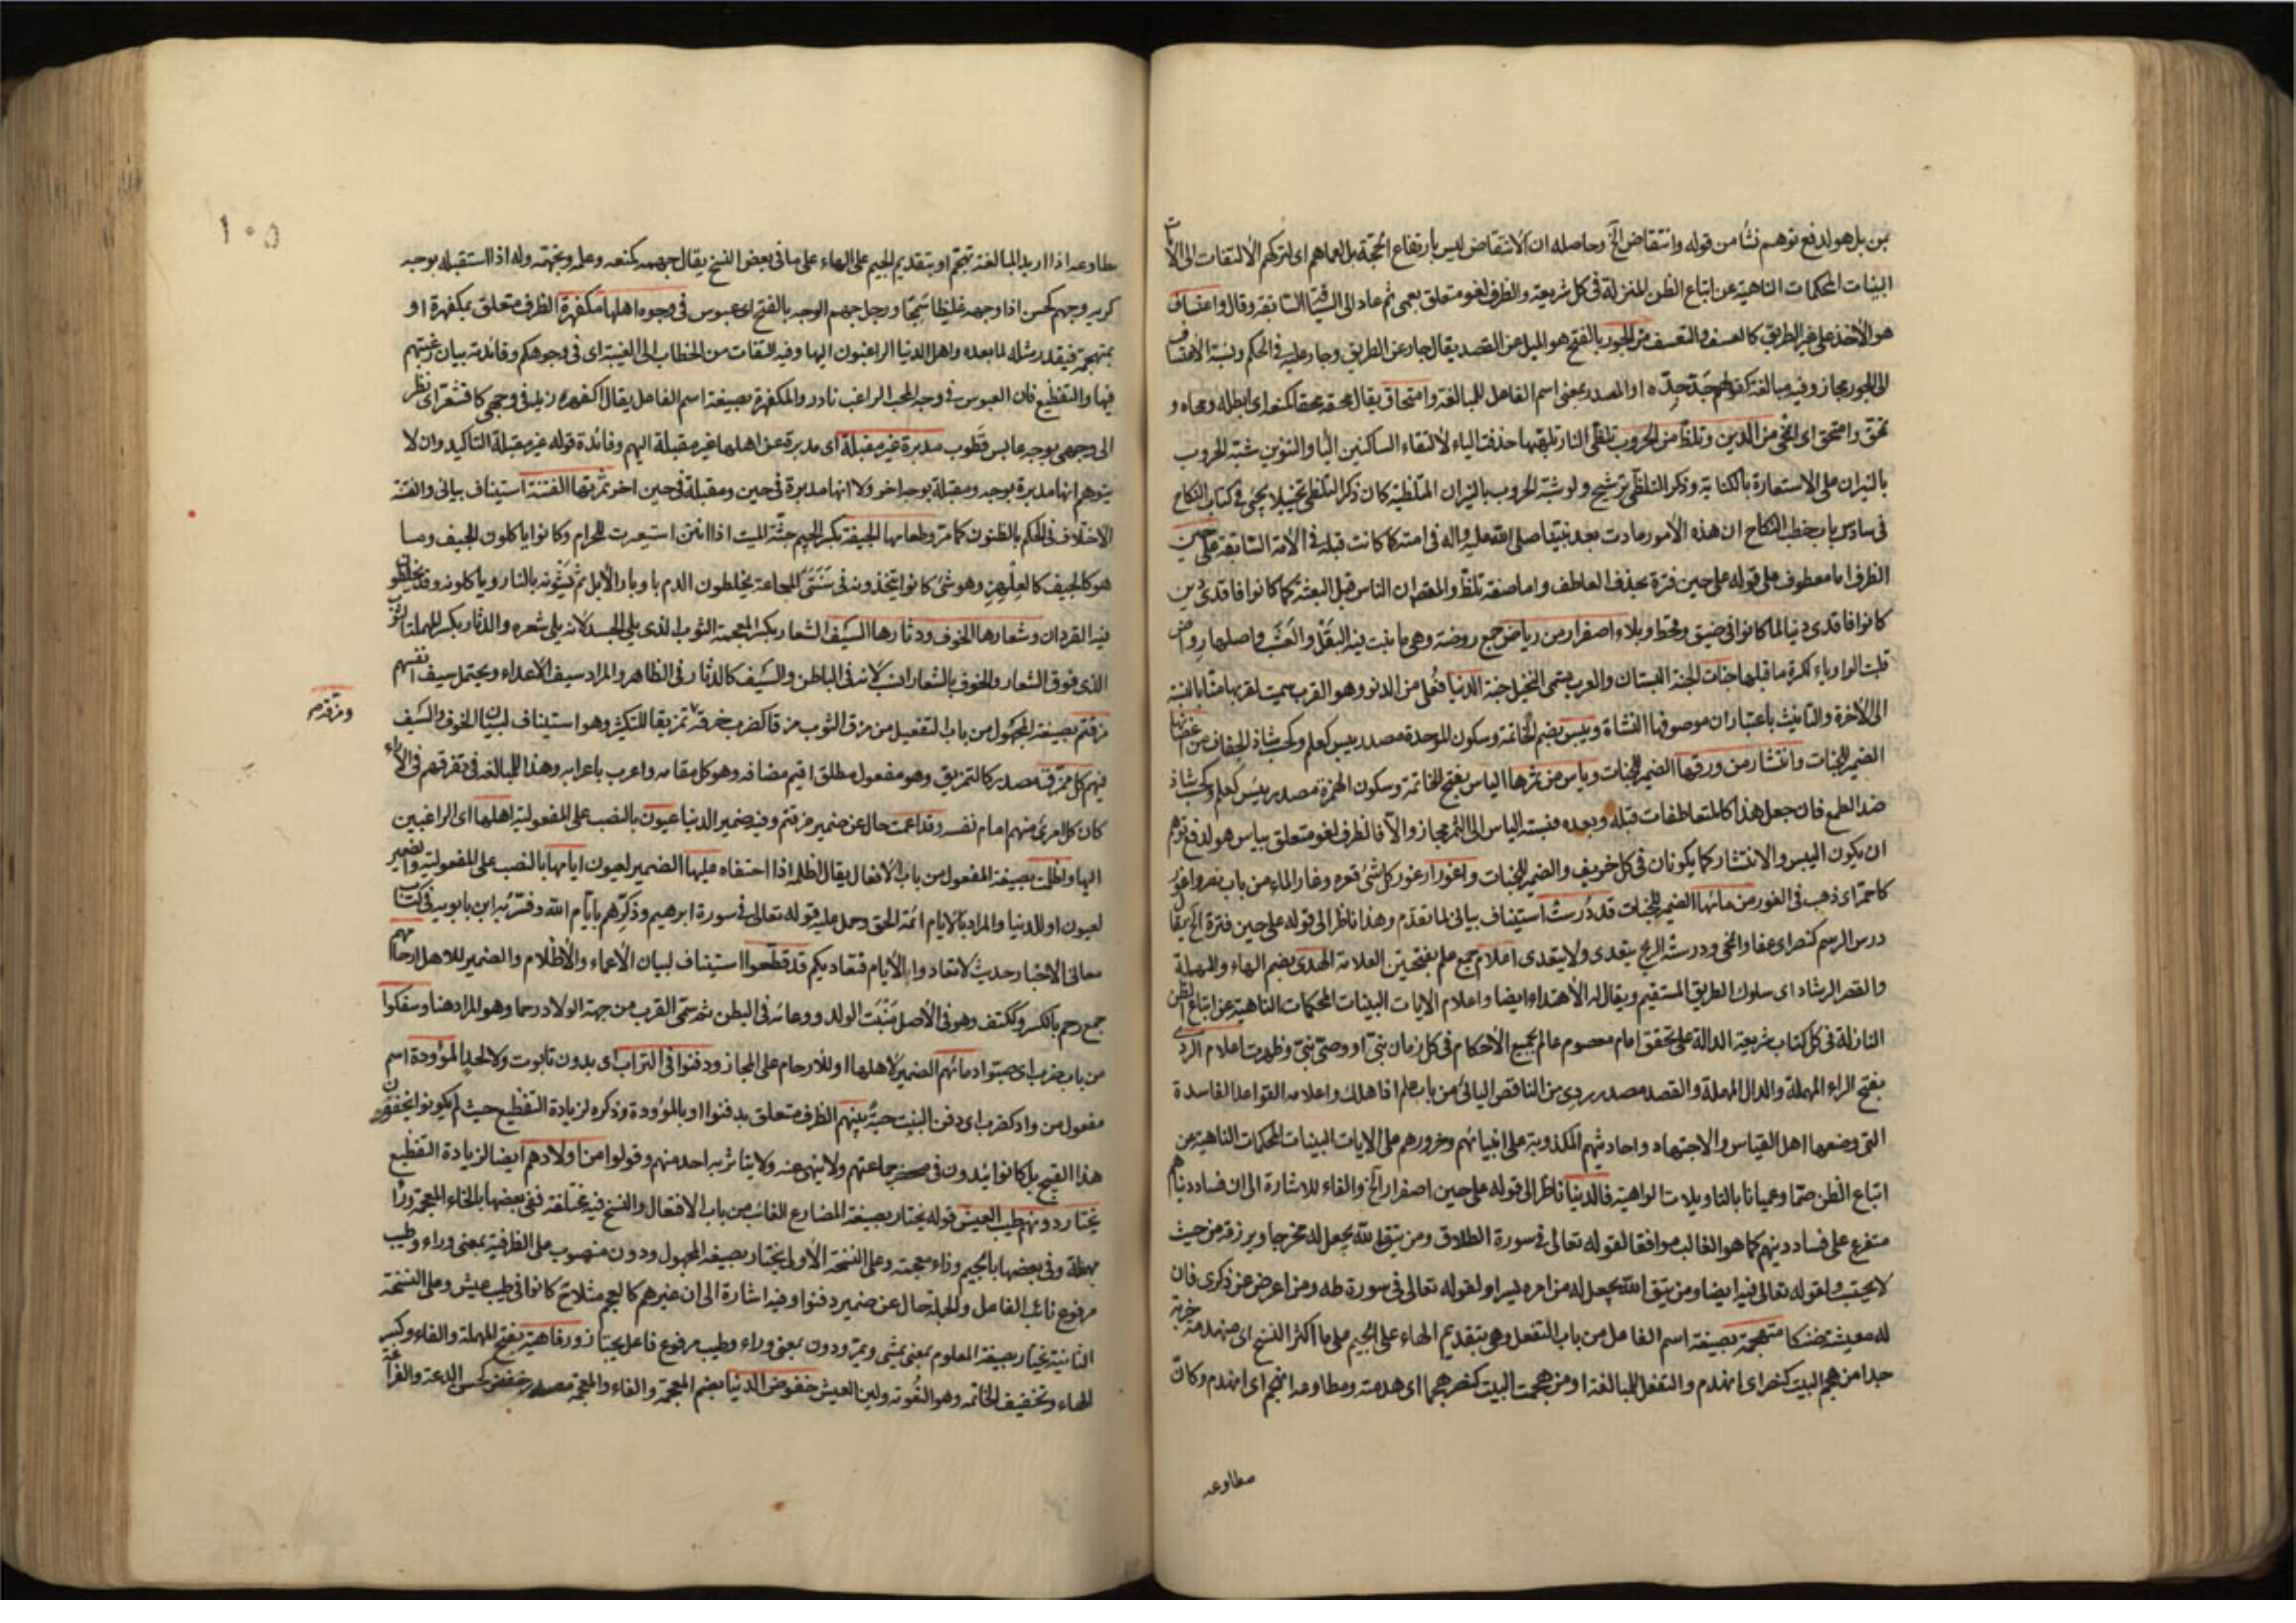 بمن بل هو لدفع توهم نشأ من قوله وانتقاض الخ وحاصله ان الانتقاض ليس بارتفاع الحجة بل لعماهم اى لتركهم الالتفات الى الآيات
البينات المحكمات الناهية عن اتباع الظن المنزلة فى كل شريعة والظرف لغو متعلق بعمى ثم عاد الى السابقة وقال واعتساف
هو الأخذ على غير الطريق كالعسف والتعسف من الجور بالفتح هو الميل عن القصد يقال جار عن الطريق وجار عليه فى الحكم ونسبة الاعتساف
الى الجور مجاز وفيه مبالغة كقولهم جد جده او المصدر بمعنى اسم الفاعل للمبالغة وامتحاق يقال محقه محقا كمنع اى ابطله ومحاه و
تمحق وامتحق اى انمحى من الدين وتلظ من الحروب تلظى النار تلهبها حذفت الياء لالتقاء الساكنين اليا والتنوين شبه الحروب
بالنيران على الاستعارة بالكناية وذكر التلظى ترشيح ولو شبه الحروب بالنيران المتلظية كان ذكر التلظى تخييلا يجئ فى كتاب النكاح
فى سادس باب خطب النكاح ان هذه الأمور عادت بعد نبينا صلى الله عليه واله فى امته كما كانت قبله فى الأمة السابقة على حين
الظرف اما معطوف على قوله على حين فترة بحذف العاطف واما صفة تلظ والمقصود ان الناس قبل البعثة كما كانوا فاقدى دين
كانوا فاقدى دنيا لما كانوا فى ضيق وقحط وبلاء اصفرار من رياض جمع روضة وهى ما نبت فيه البقل والعشب واصلها رواض
قلبت الواو ياء لكسرة ما قبلها جنات الجنة البستان والعرب يسمى النخيل جنة الدنيا فعلى من الدنو وهو القرب سميت لقربها منا بالنسبة
الى الأخرة والتانيث باعتبار ان موصوفها النشاة ويبس بضم الخاتمة وسكون الموحدة مصدر يبس كعلم وكحسب شاذ الجفاف من اغصانها
الضمير للجنات وانتشار من ورقها الضمير للجنات وياس من ثمرها الياس بفتح الخاتمة وسكون الهمزة مصدر يئس كعلم وكحسب شاذ
ضد الطمع فان جعل هذا كالمتعاطفات قبله وبعده فنسبة الياس الى الثمر مجاز والا فالظرف لغو متعلق بياس هو لدفع توهم
ان يكون اليبس والانتشار كما يكونان فى كل خريف والضمير للجنات واغورار غور كل شئ قعره وغار الماء من باب نصر واغور
كاحمر اى ذهب فى الغور من مائها الضمير للجنات قد درست استيناف بيانى لما تقدم وهذا ناظر الى قوله على حين فترة الخ يقال
درس الرسم كنصر اى عفا وانمحى ودرسته الريح يتعدى ولا يتعدى اعلام جمع علم بفتحتين العلامة الهدى بضم الهاء والمهملة
والقصر الرشاد اى سلوك الطريق المستقيم ويقال له الأهتداء ايضا واعلام الايات البينات المحكمات الناهية عن اتباع الظن
النازلة فى كل كتاب شريعة الدالة على تحقق امام معصوم عالم بجميع الأحكام فى كل زمان نبى او وصى نبى وظهرت اعلام الردى
بفتح الراء المهملة والدال المهملة والقصر مصدر ردى من الناقص اليائى من باب علم اذا هلك واعلامه القواعد الفاسدة
التى وضعها اهل القياس والاجتهاد واحاديثهم المكذوبة على انبيائهم وخرورهم على الايات البينات المحكمات الناهية عن
اتباع الظن صما وعميانا بالتاويلات الواهية فالدنيا ناظر الى قوله على حين اصفرار الخ والفاء للاشارة الى ان فساد دنياهم
متفرع على فساد دينهم كما هو الغالب موافقا لقوله تعالى فى سورة الطلاق ومن يتق الله يجعل له مخرجا ويرزقه من حيث
لا يحتسب ولقوله تعالى فيه ايضا ومن يتق الله يجعل له من امره يسرا ولقوله تعالى فى سورة طه ومن اعرض عن ذكرى فان
له معيشة ضنكا متهجمة بصيغة اسم الفاعل من باب التفعل وهى بتقديم الهاء على الجيم على ما اكثر النسخ اى منهدمة خربة
جدا من هجم البيت كنصر اى انهدم والتفعل للمبالغة او من هجمت البيت كنصر هجما اى هدمته ومطاوعه انهجم اى انهدم وكان
مطاوعه
١٠٥
مطاوعه اذا اريد المبالغة تهجم او بتقديم الجيم على الهاء على ما فى بعض النسخ يقال جهمه كمنعه وعلمه وتجهمه وله اذا استقبله بوجه
كريه وجهم كحسن اذا وجهه غليظا سمجا ورجل جهم الوجه بالفتح اى عبوس فى وجوه اهلها مكفهرة الظرف متعلق بمكفهرة او
بمتهجمة فيقدر مثله لما بعده واهل الدنيا الراغبون اليها وفيه التفات من الخطاب الى الغيبة اى فى وجوهكم وفائدته بيان رغبتهم
فيها والتفظيع فان العبوس فى وجه المحب الراغب نادر والمكفهرة بصيغة اسم الفاعل يقال اكفهر زيد فى وجهى كاقشعر اى نظر
الى وجهى بوجه عابس قطوب مدبرة غير مقبلة اى مدبرة عن اهلها غير مقبلة اليهم وفائدة قوله غير مقبلة التاكيد وان لا
يتوهم انها مدبرة بوجه ومقبلة بوجه اخر ولا انها مدبرة فى حين ومقبلة فى حين اخر ثمرتها الفتنة استيناف بيانى والفتنة
الاختلاف فى الحكم بالظنون كما مر وطعامها الجيفة بكسر الجيم جثة الميت اذا انتن استيعرت للحرام وكانوا ياكلون الجيف وما
هو كالجيف كالعلهز وهو شئ كانوا يتخذونه فى سنتى المجاعة يخلطون الدم باوبار الأبل ثم يشوونه بالنار وياكلونه وقد يخلطون
فيه القردان وشعارها الخوف ودثارها السيف الشعار بكسر المعجمة الثوب الذى يلى الجسد لانه يلى شعره والدثار بكسر المهملة الثوب
الذى فوق الشعار والخوف بالشعار انسب لانه فى الباطن والسيف كالدثار فى الظاهر والمراد سيف الاعداء ويحتمل سيف انفسهم
مزقتم بصيغة المجهول من باب التفعيل من مزق الثوب مزقا كضرب خرقه تمزيقا للتكثير وهو استيناف لبيان الخوف والسيف
ومزقه
فيهم كل ممزق مصدر كالتمزيق وهو مفعول مطلق اقيم مضافه وهو كل مقامه واعرب باعرابه وهذا للمبالغة فى تفرقهم فى الآراء
كان كل امرئ منهم امام نفسه وقد اعمت حال عن ضمير مزقتم وفيه ضمير الدنيا عيون بالنصب على المفعولية اهلها اى الراغبين
اليها واظلمت بصيغة المفعول من باب الافعال يقال اظلمه اذا اخفاه عليها الضمير لعيون ايامها بالنصب على المفعولية والضمير
لعيون او للدنيا والمراد بالايام ائمة الحق وحمل عليه قوله تعالى فى سورة ابرهيم وذكرهم بايام الله وفسره به ابن بابويه فى كتاب
معانى الاخبار وحديث لا تعادوا الأيام فتعاديكم قد قطعوا استيناف لبيان الأعماء والأظلام والضمير للاهل ارحامهم
جمع رحم بالكسر وككتف وهو فى الأصل منبت الولد ووعائه فى البطن ثم سمى القرب من جهة الولاد رحما وهو المراد هنا وسفكوا
من باب ضرب اى صبوا دمائهم الضمير لاهلها او للارحام على المجاز ودفنوا فى التراب اى بدون تابوت ولا لحد الموؤدة اسم
مفعول من واد كضرب اى دفن البنت حية بينهم الظرف متعلق بدفنوا او بالموؤدة وذكره لزيادة التفظيع حيث لم يكونوا يخفون
هذا القبيح بل كانوا يئدون فى محضر جماعتهم ولا ينهى عنه ولا يتاثر به احد منهم وقولوا من اولادهم ايضا لزيادة التفظيع
يختار دونهم طيب العيش قوله يختار بصيغة المضارع الغائب من باب الافتعال والنسخ فيه مختلفة ففى بعضها بالخاء المعجمة وراء
مهملة وفى بعضها بالجيم وزاء معجمة وعلى النسخة الأولى يختار بصيغة المجهول ودون منصوب على الظرفية بمعنى وراء وطيب
مرفوع نائب الفاعل والجملة حال عن ضمير دفنوا وفيه اشارة الى ان غيرهم كالعجم مثلا كانوا فى طيب عيش وعلى النسخة
الثانية يجتاز بصيغة المعلوم بمعنى يمشى ويمر ودون بمعنى وراء وطيب مرفوع فاعل يجتاز ورفاهية بفتح المهملة والفاء وكسر
الهاء وتخفيف الخاتمة وهو القوة ولين العيش خفوض الدنيا بضم المعجمة والفاء والمعجمة مصدر خفض كحسن الدعة والفراغة